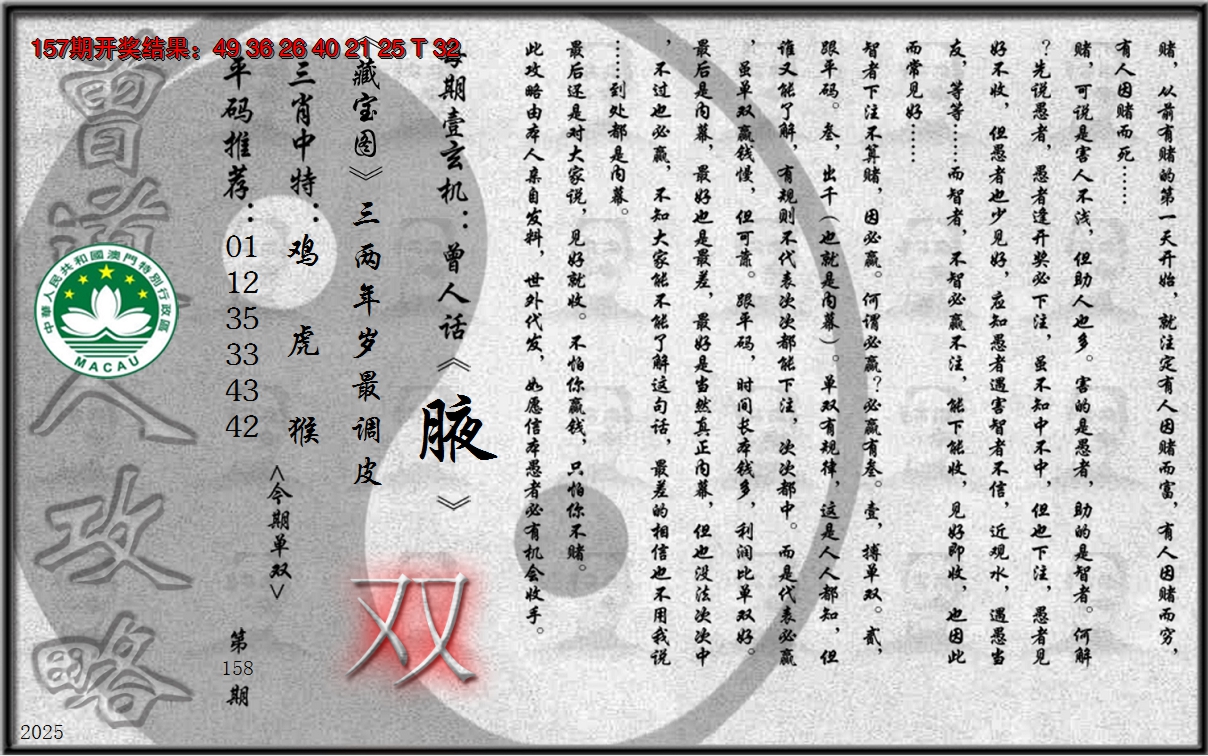 157期开奖结果：49 36 26 40 21 25 T 32
赌，从前有赌的第一天开始，就注定有人因赌而富，有人因赌而穷，
有人因赌而死……
赌，可说是害人不浅，但助人也多。害的是愚者，助的是智者。何解
？先说愚者，愚者逢开奖必下注，虽不知中不中，但也下注，愚者见
好不收，但愚者也少见好，应知愚者遇害智者不信，近观水，遇愚当
友，等等……而智者，不智必赢不注，能下能收，见好即收，也因此
而常见好……
智者下注不算赌，因必赢。何谓必赢？必赢有叁。壹，搏单双。贰，
跟平码。叁，出千（也就是内幕）。单双有规律，这是人人都知，但
谁又能了解，有规则不代表次次都能下注，次次都中。而是代表必赢
，虽单双赢钱慢，但可靠。跟平码，时间长本钱多，利润比单双好。
最后是内幕，最好也是最差，最好是当然真正内幕，但也没法次次中
，不过也必赢，不知大家能不能了解这句话，最差的相信也不用我说
……到处都是内幕。
最后还是对大家说，见好就收。不怕你赢钱，只怕你不赌。
此攻略由本人亲自发料，世外代发，如愿信本愚者必有机会收手。
每期壹玄机：曾人话《腋》
《藏宝图》三两年岁最调皮
双
三肖中特：鸡 虎 猴
<今期单双>
平码推荐：01 12 35 33 43 42
第158期
曾道人攻略
中華人民共和國澳門特別行政區
MACAU
2025